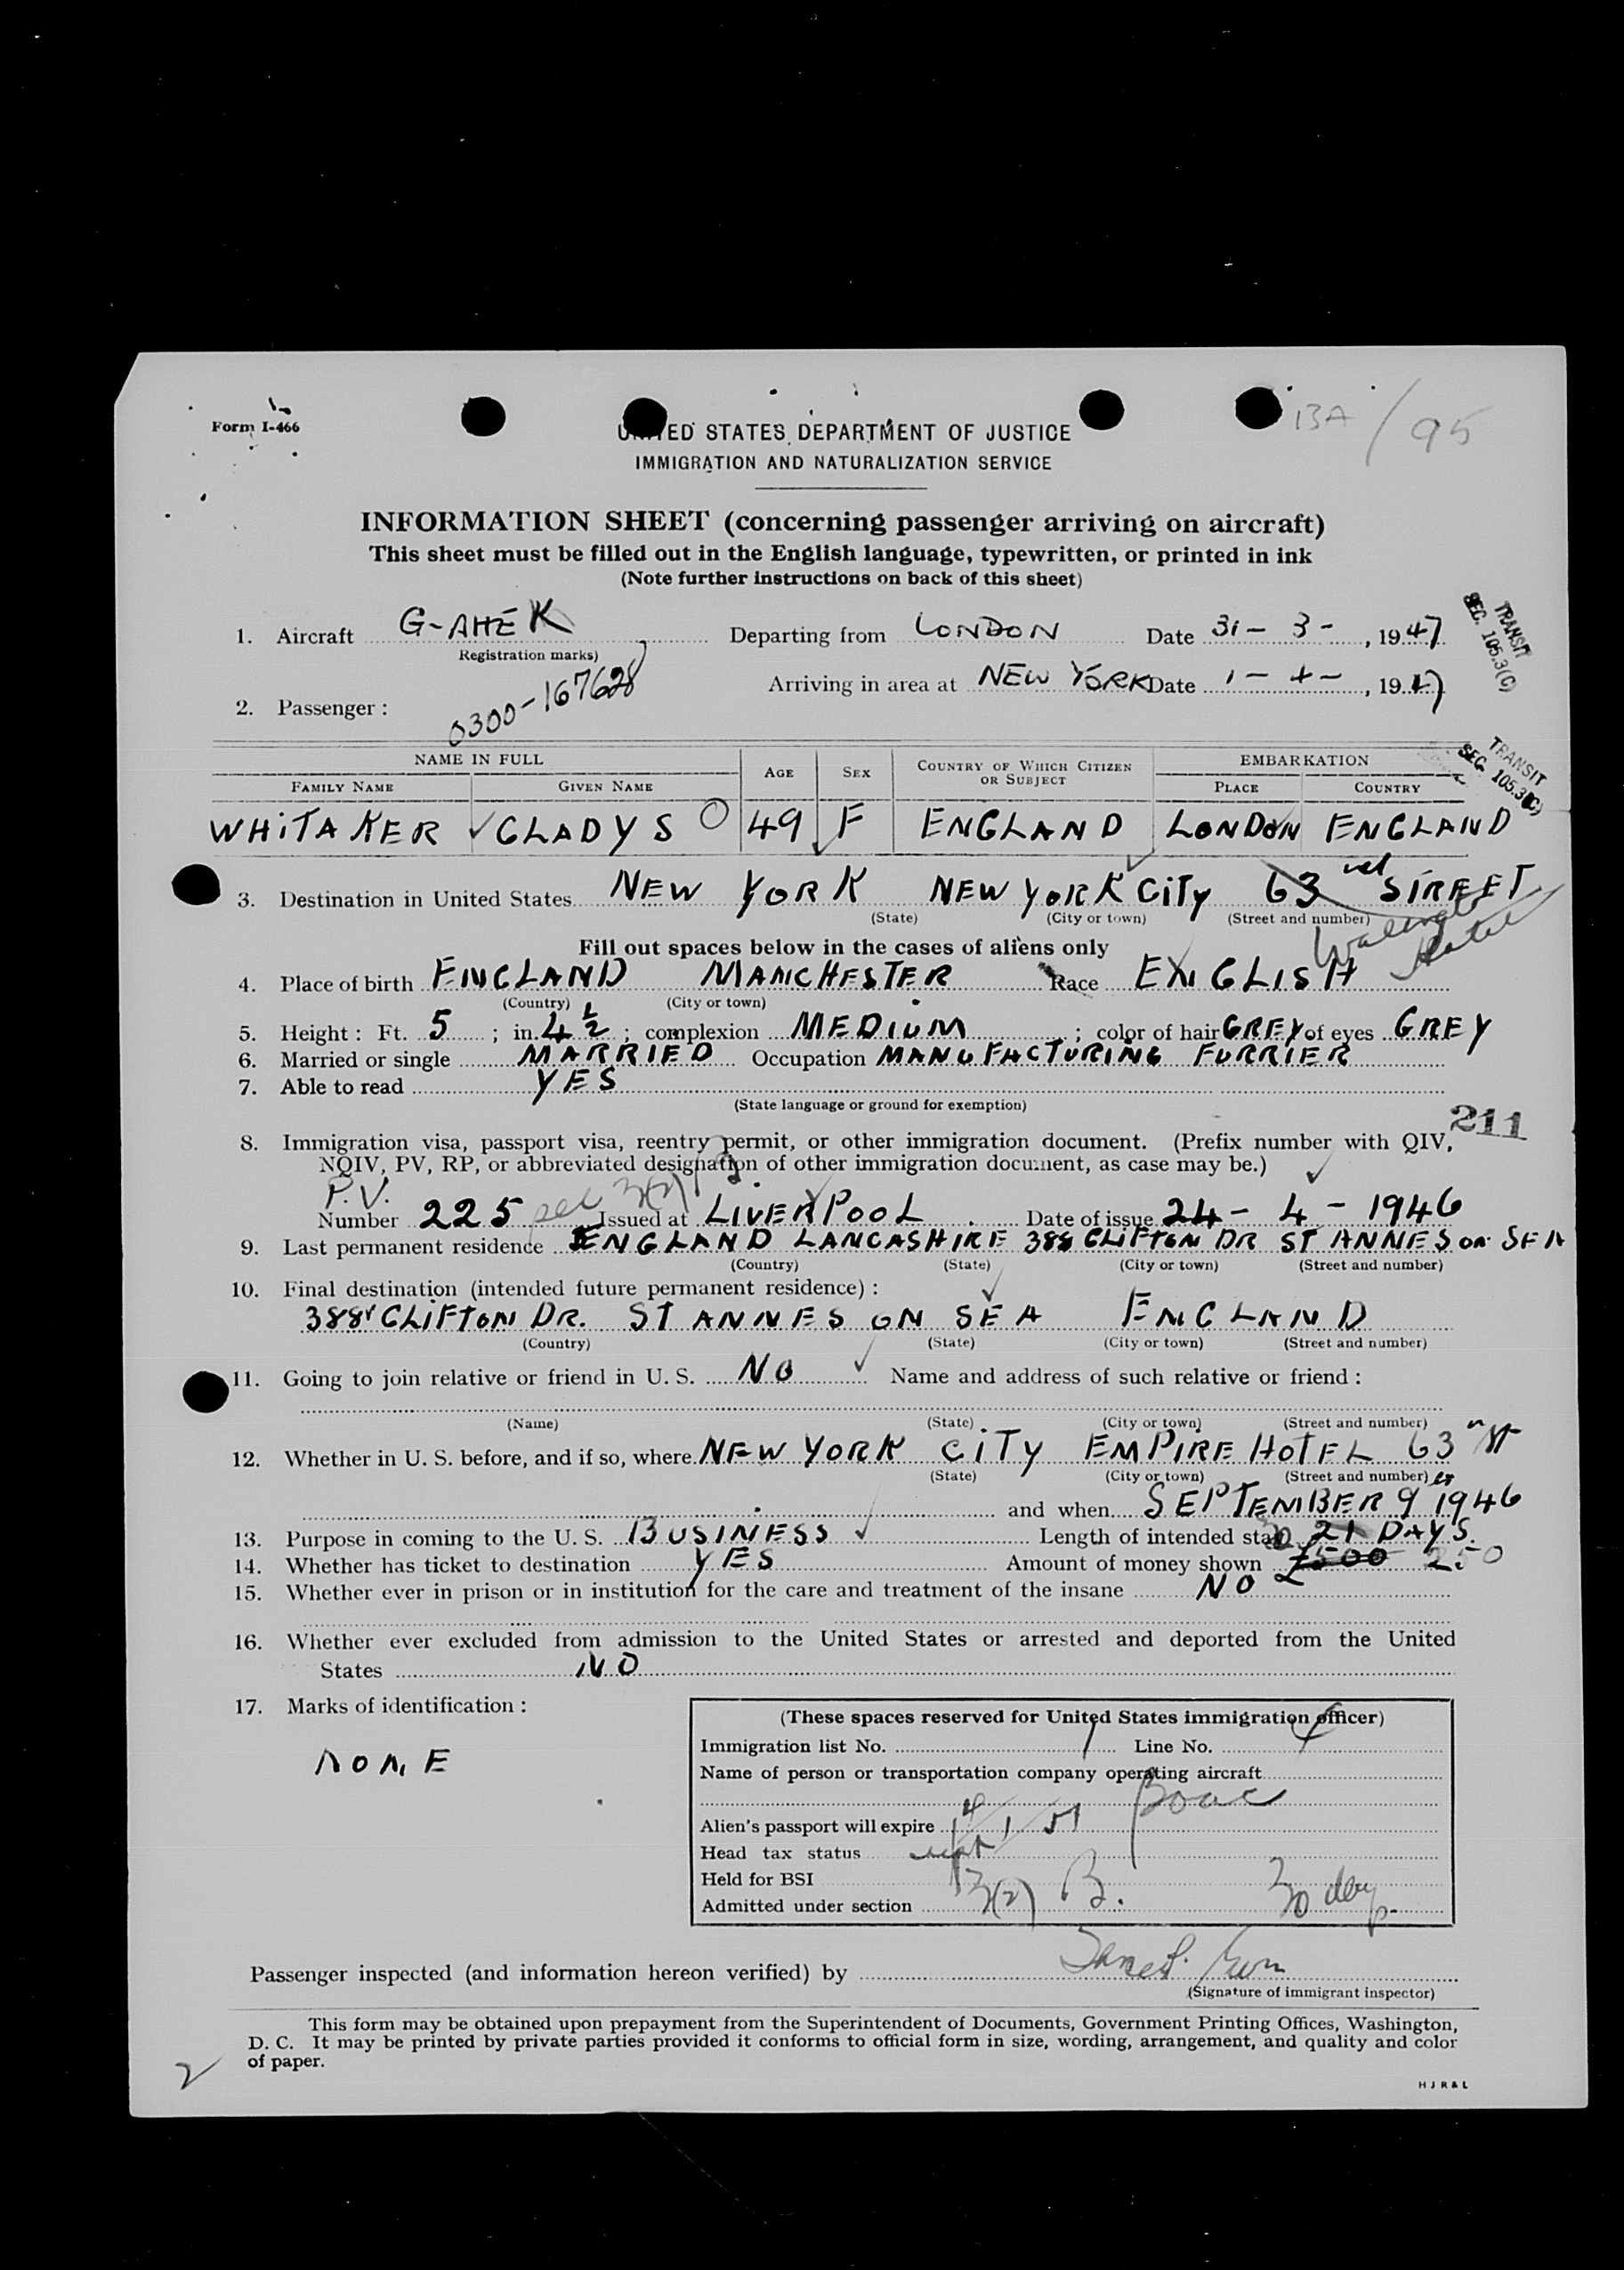 Form I-466
13A / 95
UNITED STATES DEPARTMENT OF JUSTICE
IMMIGRATION AND NATURALIZATION SERVICE
INFORMATION SHEET (concerning passenger arriving on aircraft)
This sheet must be filled out in the English language, typewritten, or printed in ink
(Note further instructions on back of this sheet)
1. Aircraft G-AHEK Departing from LONDON Date 31 - 3 - , 1947
Registration marks)
TRANSIT
SEC. 105.3(C)
Arriving in area at NEW YORK Date 1 - 4 - , 1947
2. Passenger :
0300-167628
TRANSIT
SEC. 105.3(C)
NAME IN FULL AGE SEX COUNTRY OF WHICH CITIZEN OR SUBJECT EMBARKATION
FAMILY NAME GIVEN NAME PLACE COUNTRY
WHITAKER GLADYS 49 F ENGLAND LONDON ENGLAND
3. Destination in United States NEW YORK NEW YORK CITY 63 STREET
(State) (City or town) (Street and number)
Hotel
Fill out spaces below in the cases of aliens only
4. Place of birth ENGLAND MANCHESTER Race ENGLISH
(Country) (City or town)
5. Height : Ft. 5 ; in. 4 1/2 ; complexion MEDIUM ; color of hair GREY of eyes GREY
6. Married or single MARRIED Occupation MANUFACTURING FURRIER
7. Able to read YES
(State language or ground for exemption)
211
8. Immigration visa, passport visa, reentry permit, or other immigration document. (Prefix number with QIV,
NQIV, PV, RP, or abbreviated designation of other immigration document, as case may be.)
P.V.
Number 225 sec 3(2) Issued at LIVERPOOL Date of issue 24 - 4 - 1946
9. Last permanent residence ENGLAND LANCASHIRE 388 CLIFTON DR ST ANNES on SEA
(Country) (State) (City or town) (Street and number)
10. Final destination (intended future permanent residence) :
388 CLIFTON DR. ST ANNES ON SEA ENGLAND
(Country) (State) (City or town) (Street and number)
11. Going to join relative or friend in U. S. NO Name and address of such relative or friend :
(Name) (State) (City or town) (Street and number)
12. Whether in U. S. before, and if so, where NEW YORK CITY EMPIRE HOTEL 63 St
(State) (City or town) (Street and number)
and when SEPTEMBER 9 1946
13. Purpose in coming to the U. S. BUSINESS Length of intended stay 30 21 DAYS.
14. Whether has ticket to destination YES Amount of money shown £500 250
15. Whether ever in prison or in institution for the care and treatment of the insane NO
16. Whether ever excluded from admission to the United States or arrested and deported from the United
States NO
17. Marks of identification :
NONE
(These spaces reserved for United States immigration officer)
Immigration list No. 1 Line No. 4
Name of person or transportation company operating aircraft
Boac
Alien's passport will expire 4/1/51
Head tax status
Held for BSI
Admitted under section 3(2) B. 30 days
Passenger inspected (and information hereon verified) by
(Signature of immigrant inspector)
This form may be obtained upon prepayment from the Superintendent of Documents, Government Printing Offices, Washington,
D. C. It may be printed by private parties provided it conforms to official form in size, wording, arrangement, and quality and color
of paper.
2
H J R & L